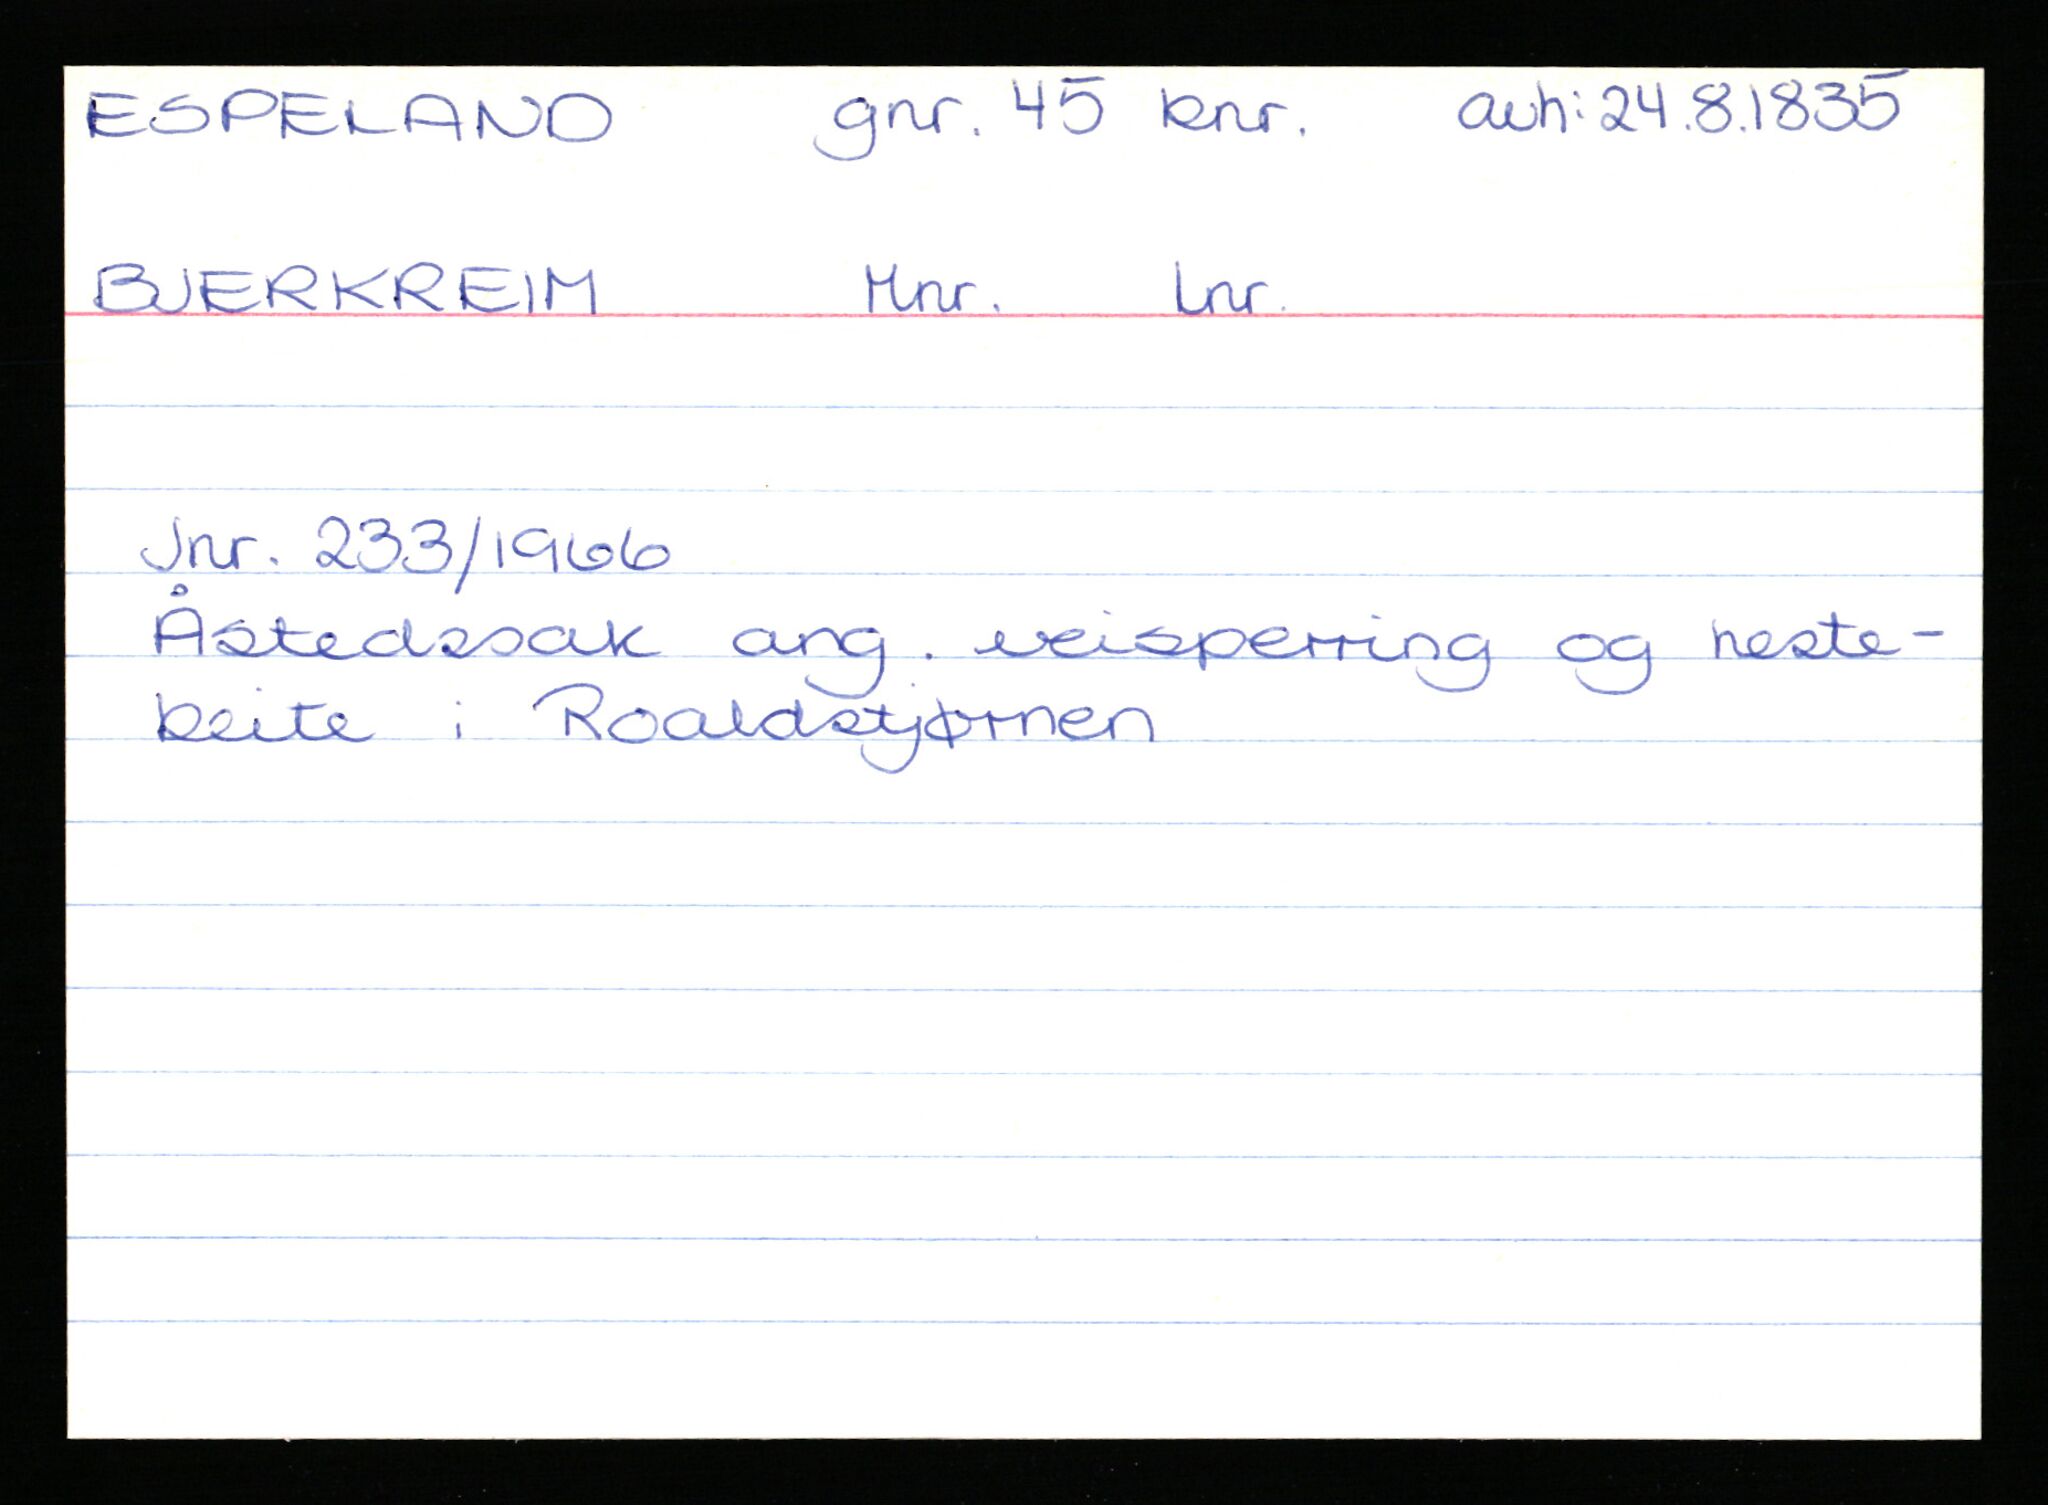 ESPELAND gnr. 45 bnr. avh: 24.8.1835
BJERKREIM Mnr. Lnr.
Jnr. 233/1966
Åstedssak ang. veisperring og heste-
beite i Roaldstjørnen